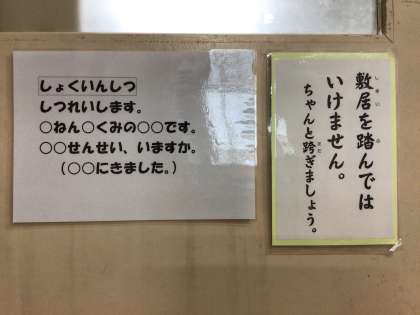 しょくいんしつ
しつれいします。
○ねん○くみの○○です。
○○せんせい、いますか。
（○○にきました。）
敷居を踏んでは
いけません。
ちゃんと跨ぎましょう。